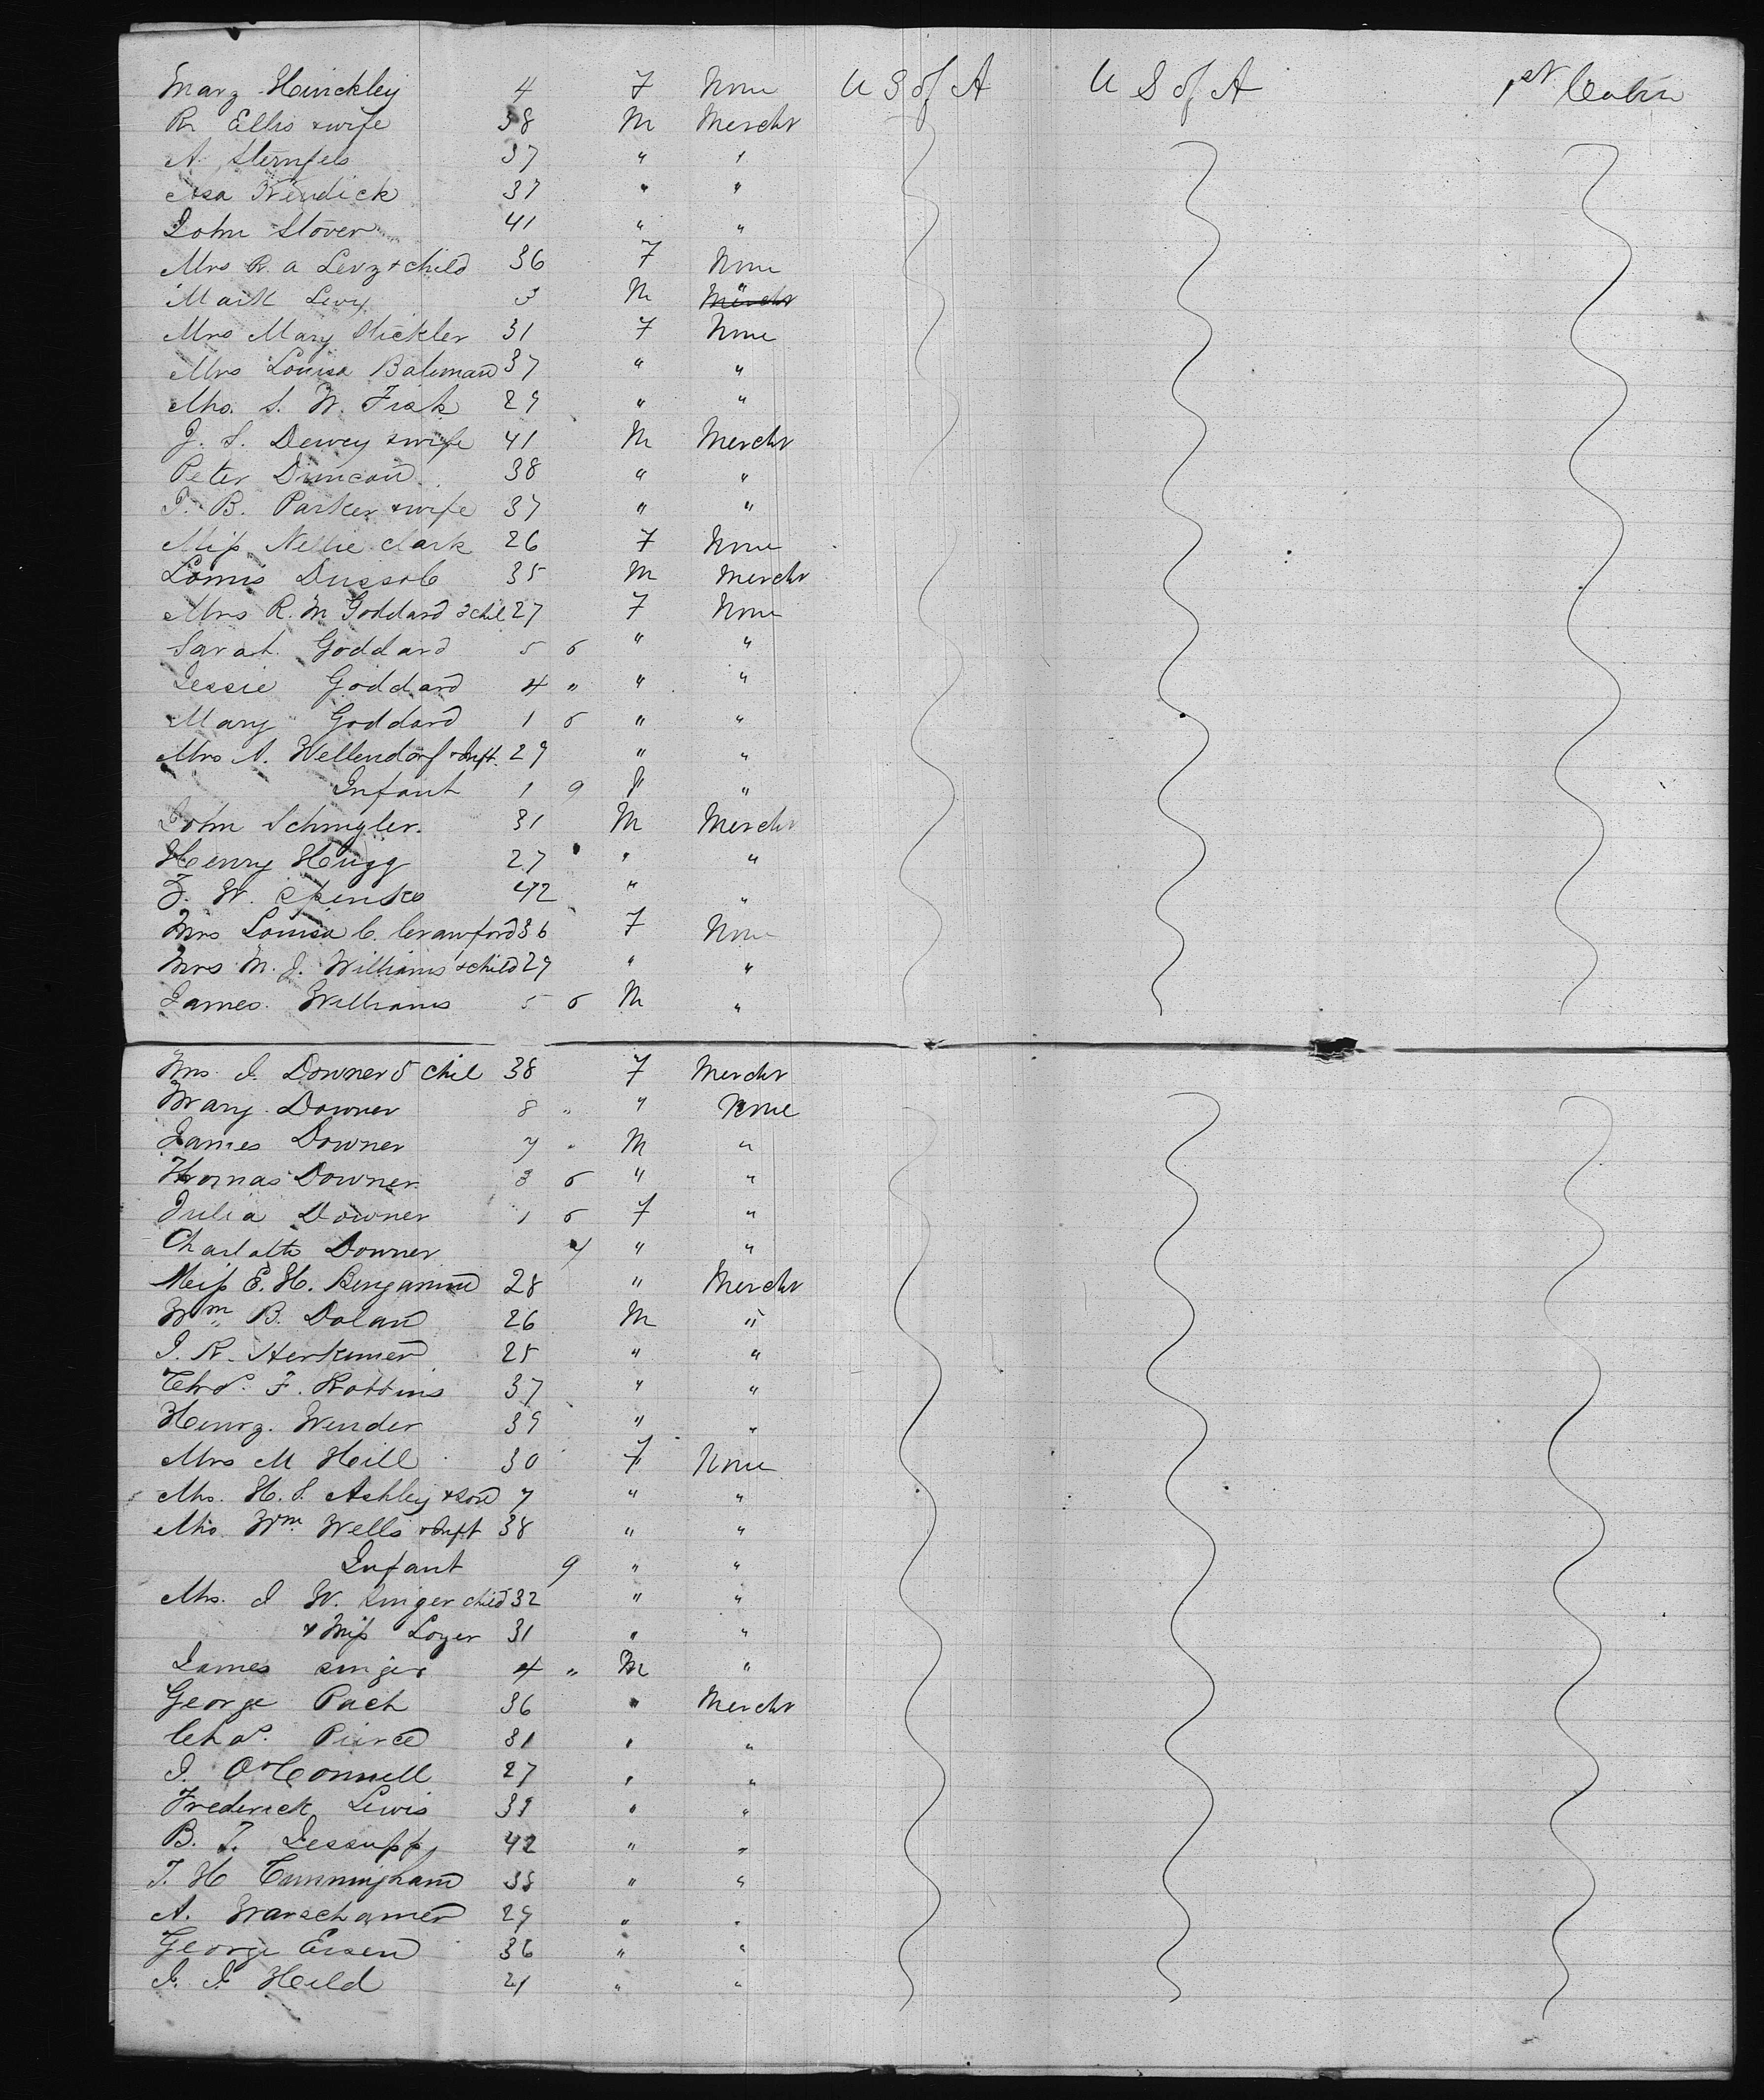 Mary Hinckley 4 F None U S of A U S of A 1st Cabin
R. Ellis & wife 38 M Mercht
A. Sternfels 37 " "
Asa Kendick 37 " "
John Stover 41 " "
Mrs R. A Levy & child 36 F None
Mark Levy 3 M "
Mrs Mary Stickler 31 F None
Mrs Louisa Bateman 37 " "
Mrs. S. W. Fisk 29 " "
J. S. Dewey & wife 41 M Mercht
Peter Duncan 38 " "
J. B. Parker & wife 37 " "
Miss Nellie Clark 26 F None
Louis 35 M Mercht
Mrs R. M. Goddard 3 chil 27 F None
Sarah Goddard 5 6 " "
Jessie Goddard 4 " " "
Mary Goddard 1 6 " "
Mrs A. Wellendorf & Inft. 29 " "
Infant 1 9 " "
John Schuyler. 31 M Mercht
Henry Hugg 27 " "
F. W. 42 " "
Mrs Louisa C. Crawford 36 F None
Mrs M. J. Williams & child 29 " "
James Williams 5 6 M "
Mrs. J. Downer 5 chil 38 F Mercht
Mary Downer 8 " " None
James Downer 7 " M "
Thomas Downer 3 6 " "
Julia Downer 1 6 F "
Charlotte Downer 4 " "
Miss E. H. Bengamin 28 " Mercht
Wm B. Dolan 26 M "
J. R. Herkimer 25 " "
Chas. F. Robbins 37 " "
Henry Wender 39 " "
Mrs M Hill 30 F None
Mrs. H. S. Ashley & son 7 " "
Mrs Wm Wells & Inft 38 " "
Infant 9 " "
Mrs. J W. Singer child 32 " "
& Miss Loyer 31 " "
James Singer 4 " M "
George Pach 36 " Mercht
Chas. Pierce 31 " "
J. O'Connell 27 " "
Frederick Lewis 39 " "
B. T. Jessupp 42 " "
T. H Cunningham 38 " "
A. Warschamer 29 " "
George Eisen 36 " "
J. J. Held 21 " "